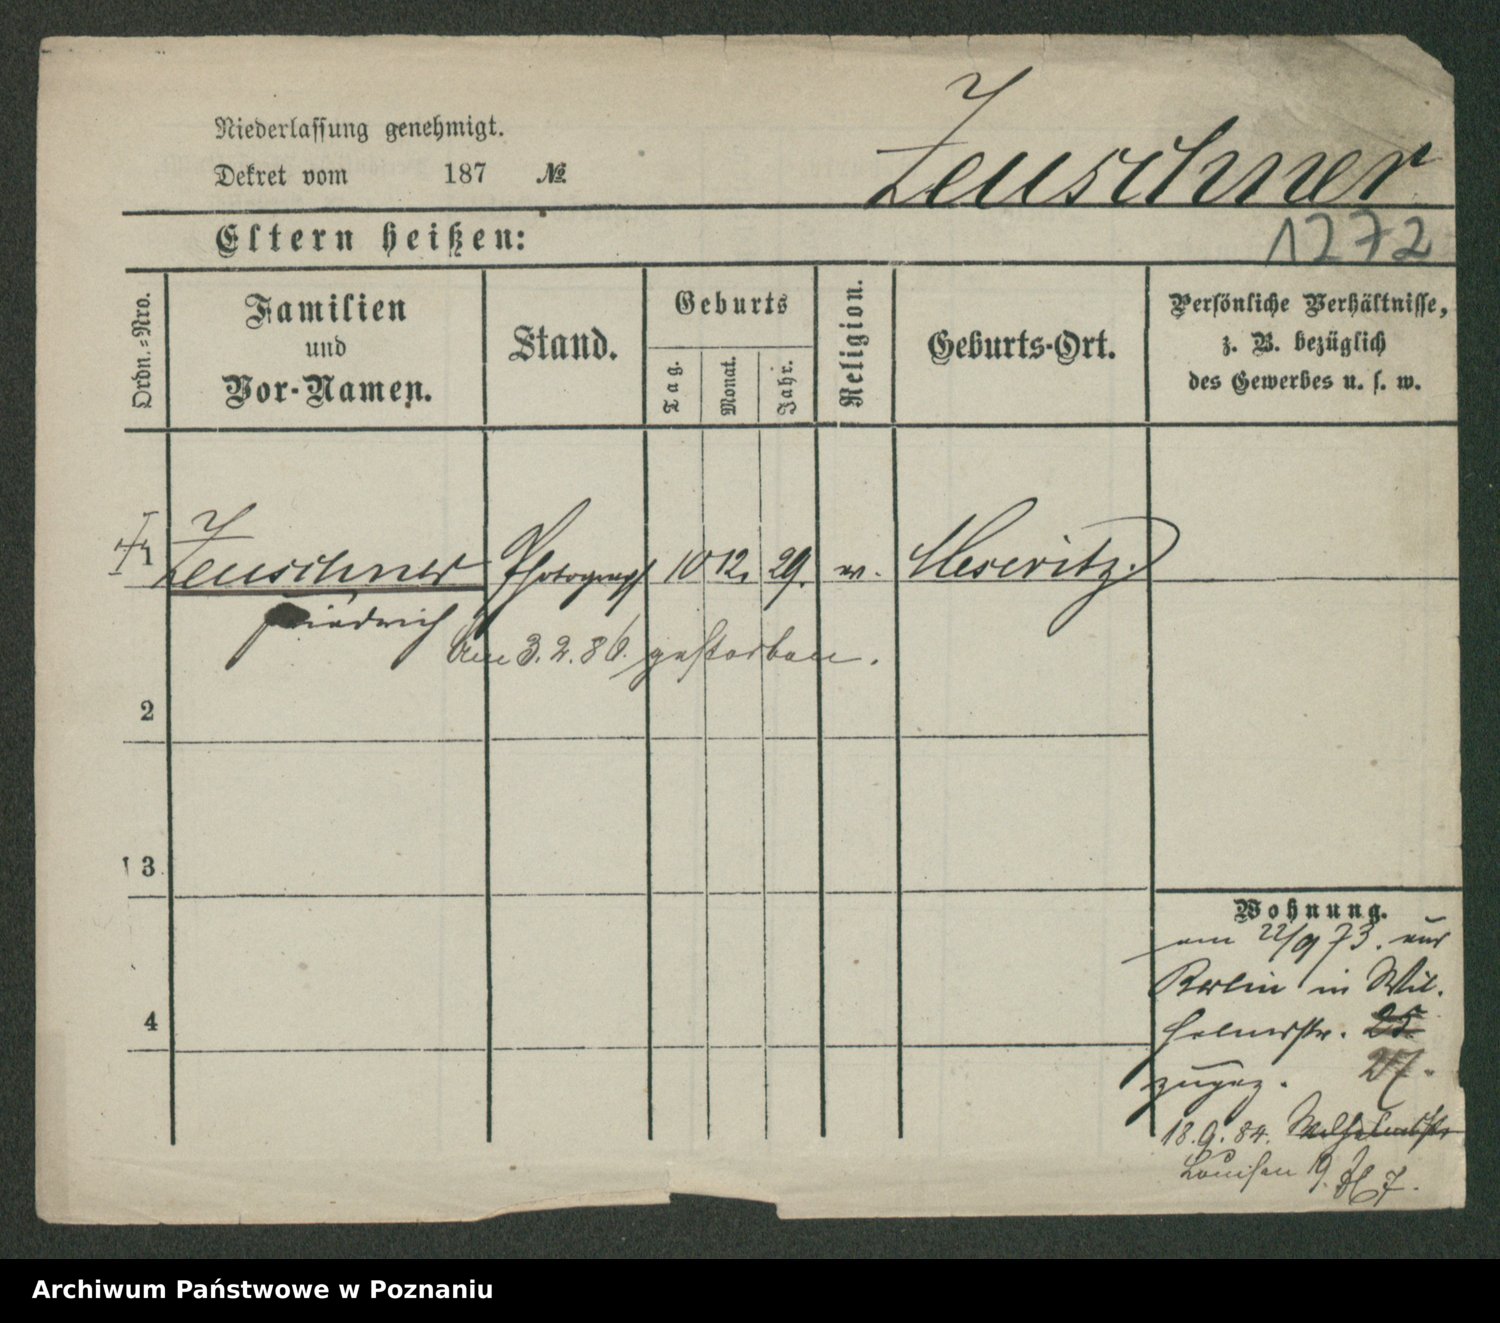 Zeuschner
Niederlassung genehmigt.
Dekret vom 187 №
Eltern heißen:
1272
Ordn.=Nro.
Familien
und
Vor-Namen.
Stand.
Geburts
Tag.
Monat.
Jahr.
Religion.
Geburts-Ort.
Persönliche Verhältnisse,
z. B. bezüglich
des Gewerbes u. s. w.
Zeuschner Photograph 10 12. 29. ev. Meseritz.
Friedrich
Am 3.2.86. gestorben.
2
3
4
Wohnung.
am 22/9 73. aus
Berlin in Wil-
helmstr. 25
zugez. 27.
18.9.84. Wilhelmstr
Louisen 19. 7.
Archiwum Państwowe w Poznaniu